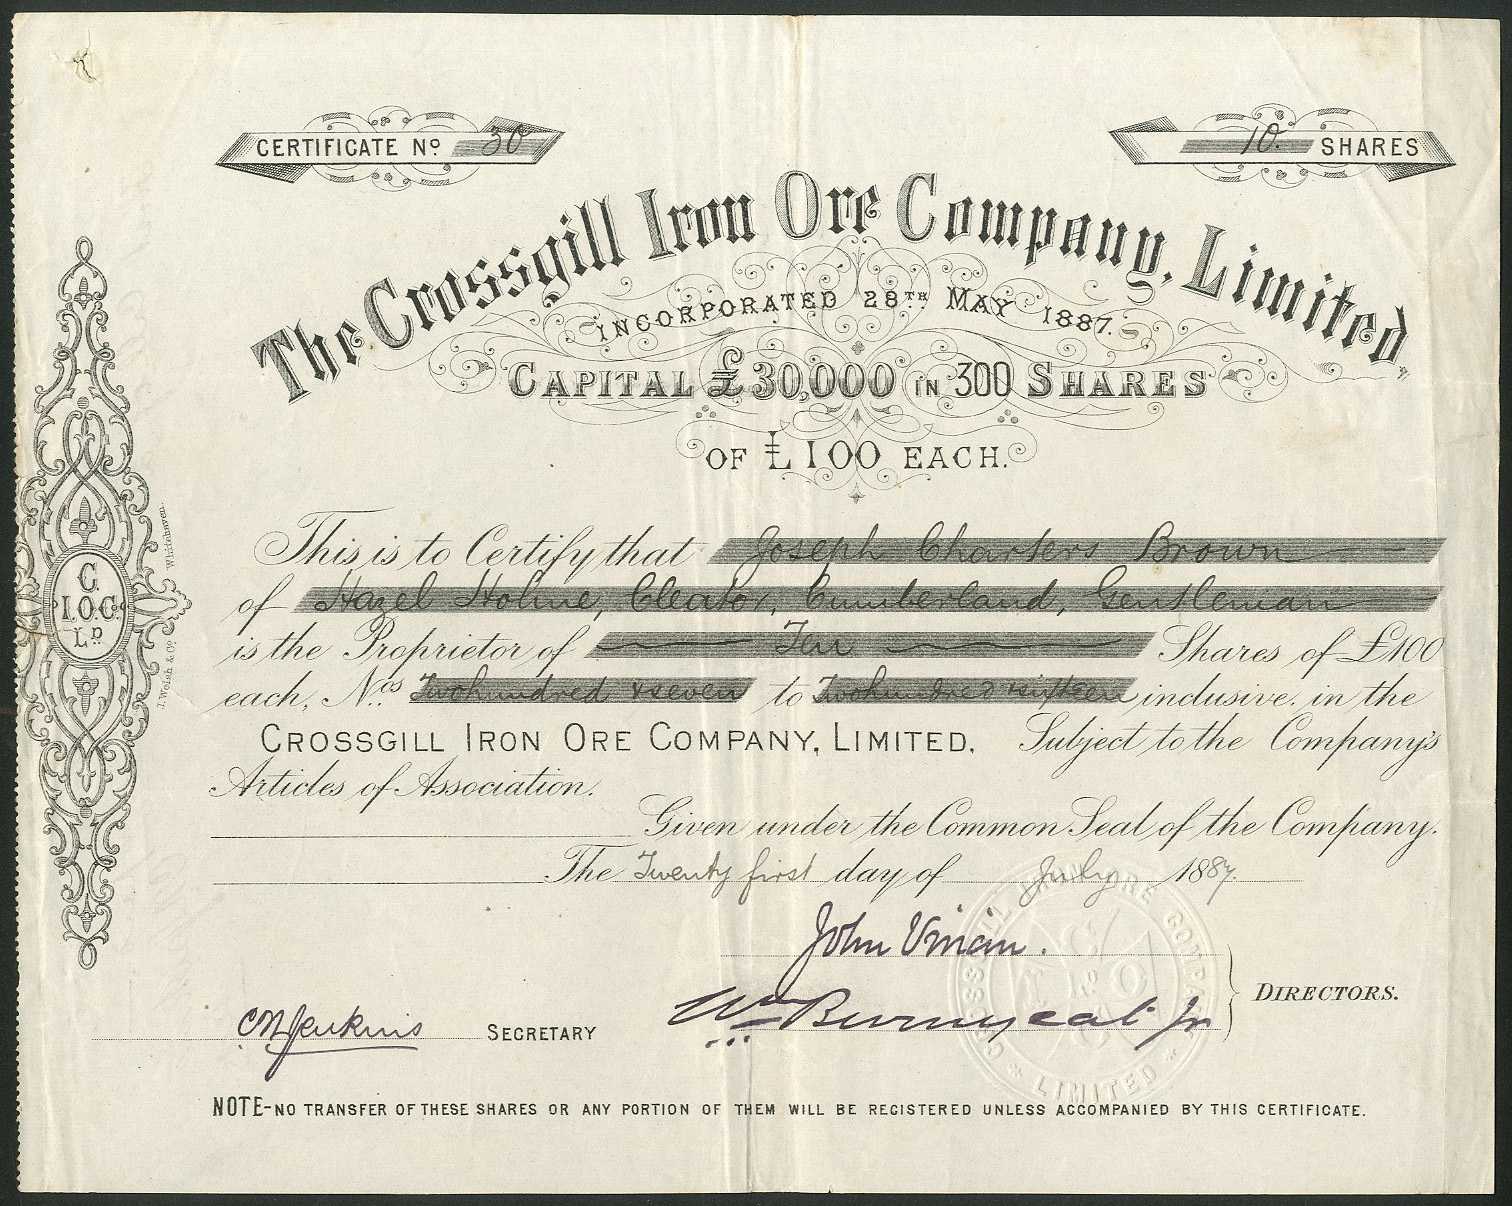 CERTIFICATE No 30
10. SHARES
The Crossgill Iron Ore Company, Limited,
INCORPORATED 28TH MAY 1887.
CAPITAL £30,000 IN 300 SHARES
OF £100 EACH.
This is to Certify that Joseph Charters Brown
of Hazel Holme, Cleator, Cumberland, Gentleman
is the Proprietor of Ten Shares of £100
each, Nos Two hundred & seven to Two hundred & sixteen inclusive, in the
CROSSGILL IRON ORE COMPANY, LIMITED. Subject to the Company's
Articles of Association.
Given under the Common Seal of the Company.
The Twenty first day of July 1887.
John Vivian.
Wm Burnyeat Jr
DIRECTORS.
C N Jenkins SECRETARY
NOTE-NO TRANSFER OF THESE SHARES OR ANY PORTION OF THEM WILL BE REGISTERED UNLESS ACCOMPANIED BY THIS CERTIFICATE.
C.
I.O.C.
LD
J. Walsh & Co. Whitehaven.
CROSSGILL IRON ORE COMPANY
LIMITED